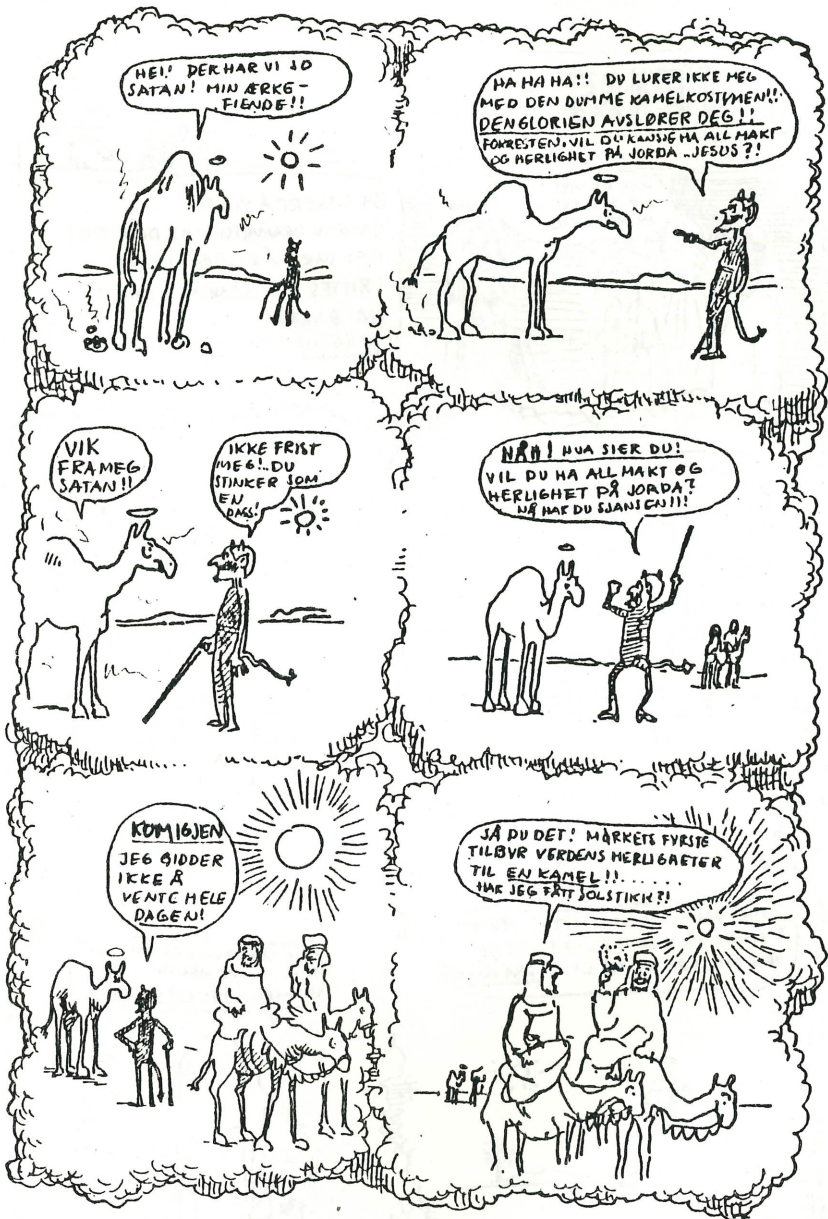 HEI! DER HAR VI JO
SATAN! MIN ÆRKE-
FIENDE!!
HA HA HA!! DU LURER IKKE MEG
MED DEN DUMME KAMELKOSTYMEN!!
DEN GLORIEN AVSLØRER DEG!!
FORRESTEN, VIL DU KANSJE HA ALL MAKT
OG HERLIGHET PÅ JORDA..JESUS?!
VIK
FRA MEG
SATAN!!
IKKE FRIST
MEG!..DU
STINKER SOM
EN
DAGS!
NÅH! HVA SIER DU!
VIL DU HA ALL MAKT OG
HERLIGHET PÅ JORDA?
NÅ HAR DU SJANSEN!!!
KOM IGJEN
JEG GIDDER
IKKE Å
VENTE HELE
DAGEN!
SÅ DU DET! MØRKETS FYRSTE
TILBYR VERDENS HERLIGHETER
TIL EN KAMEL!!......
HAR JEG FÅTT SOLSTIKK?!